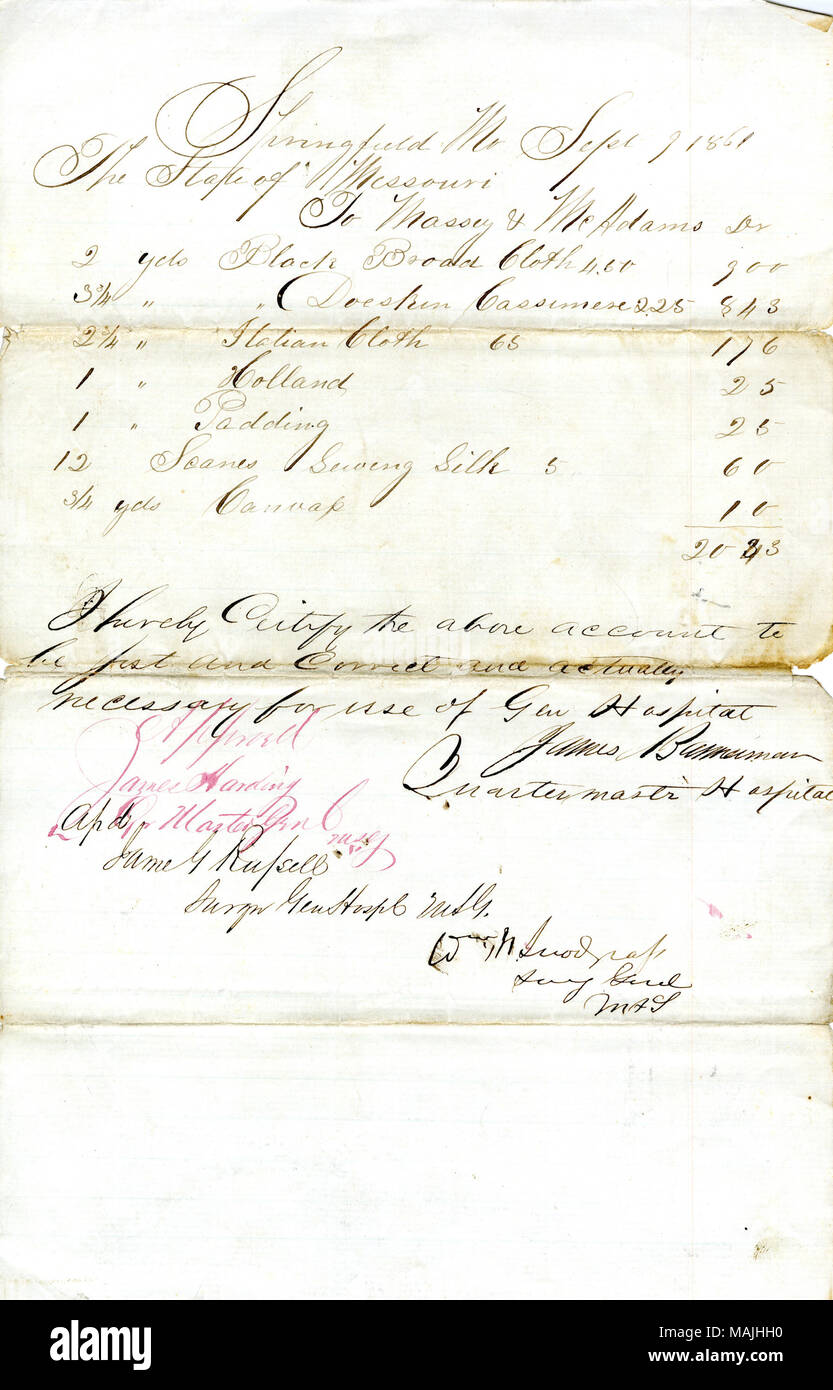 Springfield Mo Sept 9 1861
The State of Missouri
To Massey & McAdams Dr
2 yds Black Broad Cloth 4.50 9 00
3 3/4 " " Doeskin Cassimere 2.25 8 43
2 3/4 " Italian Cloth 65 1 76
1 " Holland 25
1 " Padding 25
12 Scanes Sewing Silk 5 60
3/4 yds Canvas 10
20 43
I hereby Certify the above account to
be just and Correct and actually
necessary for use of Gen Hospital
James Bannerman
Quartermaster Hospital
Approved
James Harding
Qr Master Genl
MSG
Apd
Jame G Russell
Surgn Gen Hospl MSG.
Wm N. Snodgrass
Surg Genl
MSG
alamy
Image ID: MAJHH0
www.alamy.com